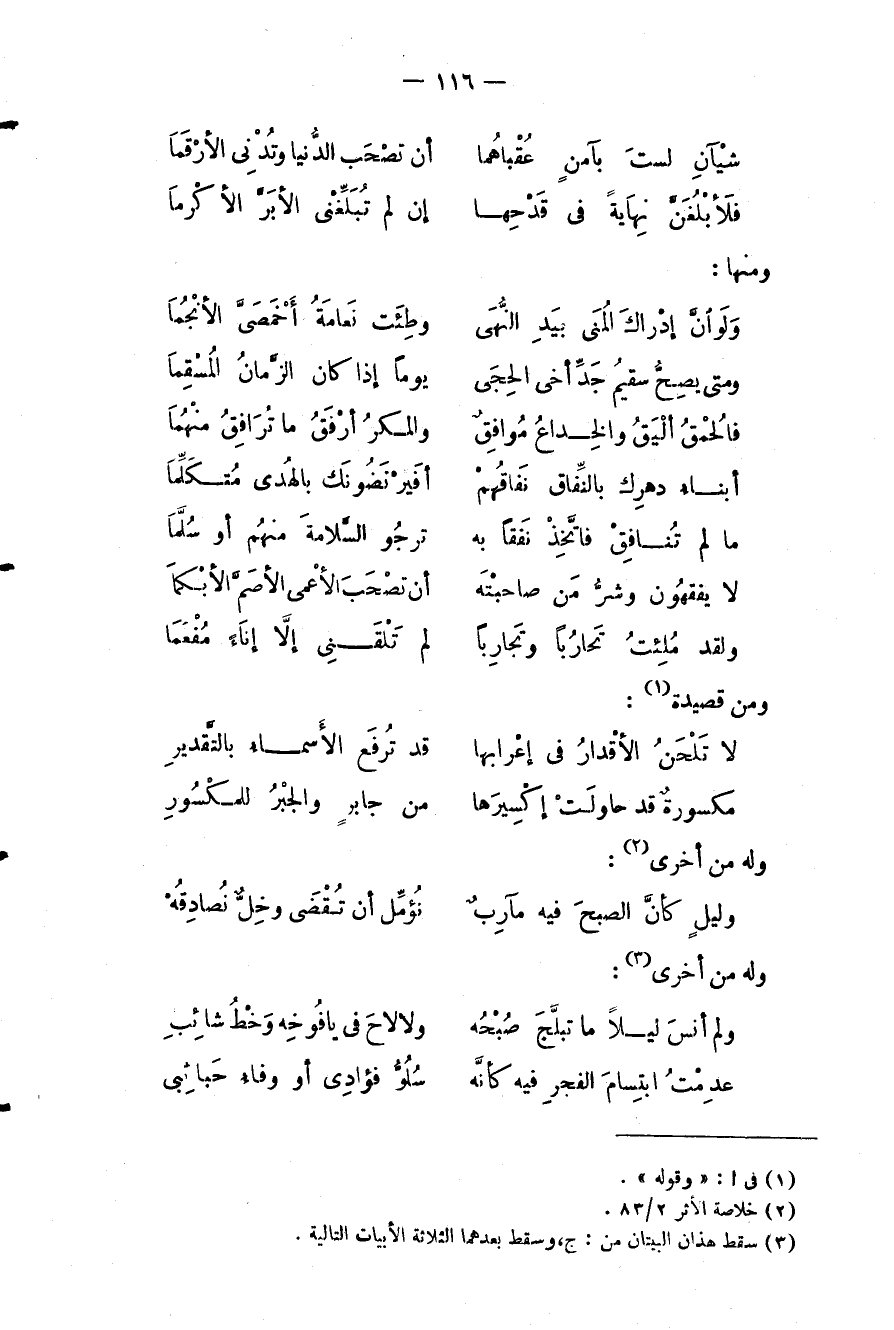 — ١١٦ —
شيْآنِ لستَ بآمنٍ عُقْباهُما أن تصْحَب الدُّنيا وتُدْنِى الأرْقَمَا
فَلَأبْلُغَنَّ نِهايةً فى قَدْحِهـا إن لم تُبَلِّغْنى الأبَرَّ الأكْرما
ومنها :
وَلَو أنَّ إدْراكَ المُنَى بيَدِ النُّهَى وطِئَت نَعامَةُ أَخْمَصَىَّ الأنْجُمَا
ومتى يصِحُّ سقيمُ جَدِّ أخى الحِجَى يوماً إذا كان الزَّمانُ المُسْقِما
فالحُمْقُ ألْيَقُ والخِـداعُ مُوافِقٌ والمـكرُ أرْفَقُ ما تُرَافِقُ منْهُما
أبنـاء دهرِك بالنِّفاق نَفَاقُهُمْ أفَيرْتَضُونَك بالهُدى مُتـكَلِّما
ما لم تُنـافِقْ فاتَّخِذْ نَفَقاً به ترجُو السَّلامةَ منهُم أو سُلَّما
لا يفقهُون وشرُّ مَن صاحبْتَه أن تصْحَبَ الأعْمى الأصَمَّ الأبْكما
ولقد مُلِئتُ تَحارُباً وتَجارِباً لم تَلْقَـنِى إلَّا إنَاءً مُفْعَمَا
ومن قصيدة(١) :
لا تَلْحَنُ الأقْدارُ فى إعْرابها قد تُرفَع الأَسمـاء بالتَّقديرِ
مكسورةٌ قد حاولَتْ إكْسِيرَها من جابرٍ والجبْرُ للمـكْسُورِ
وله من أخرى(٢) :
وليلٍ كأنَّ الصبحَ فيه مآرِبٌ نُؤمِّل أن تُقْضَى وخِلٌّ نُصادِقُهْ
وله من أخرى(٣) :
ولم أنسَ ليـلاً ما تبلَّجَ صُبْحُه ولا لاحَ فى يافُوخِه وَخْطُ شائِبِ
عدِمْتُ ابتِسامَ الفجرِ فيه كأنَّه سُلُوُّ فؤادِى أو وفاء حَبائِبى
(١) فى ا : « وقوله » .
(٢) خلاصة الأثر ٢/ ٨٣ .
(٣) سقط هذان البيتان من : ج، وسقط بعدهما الثلاثة الأبيات التالية .